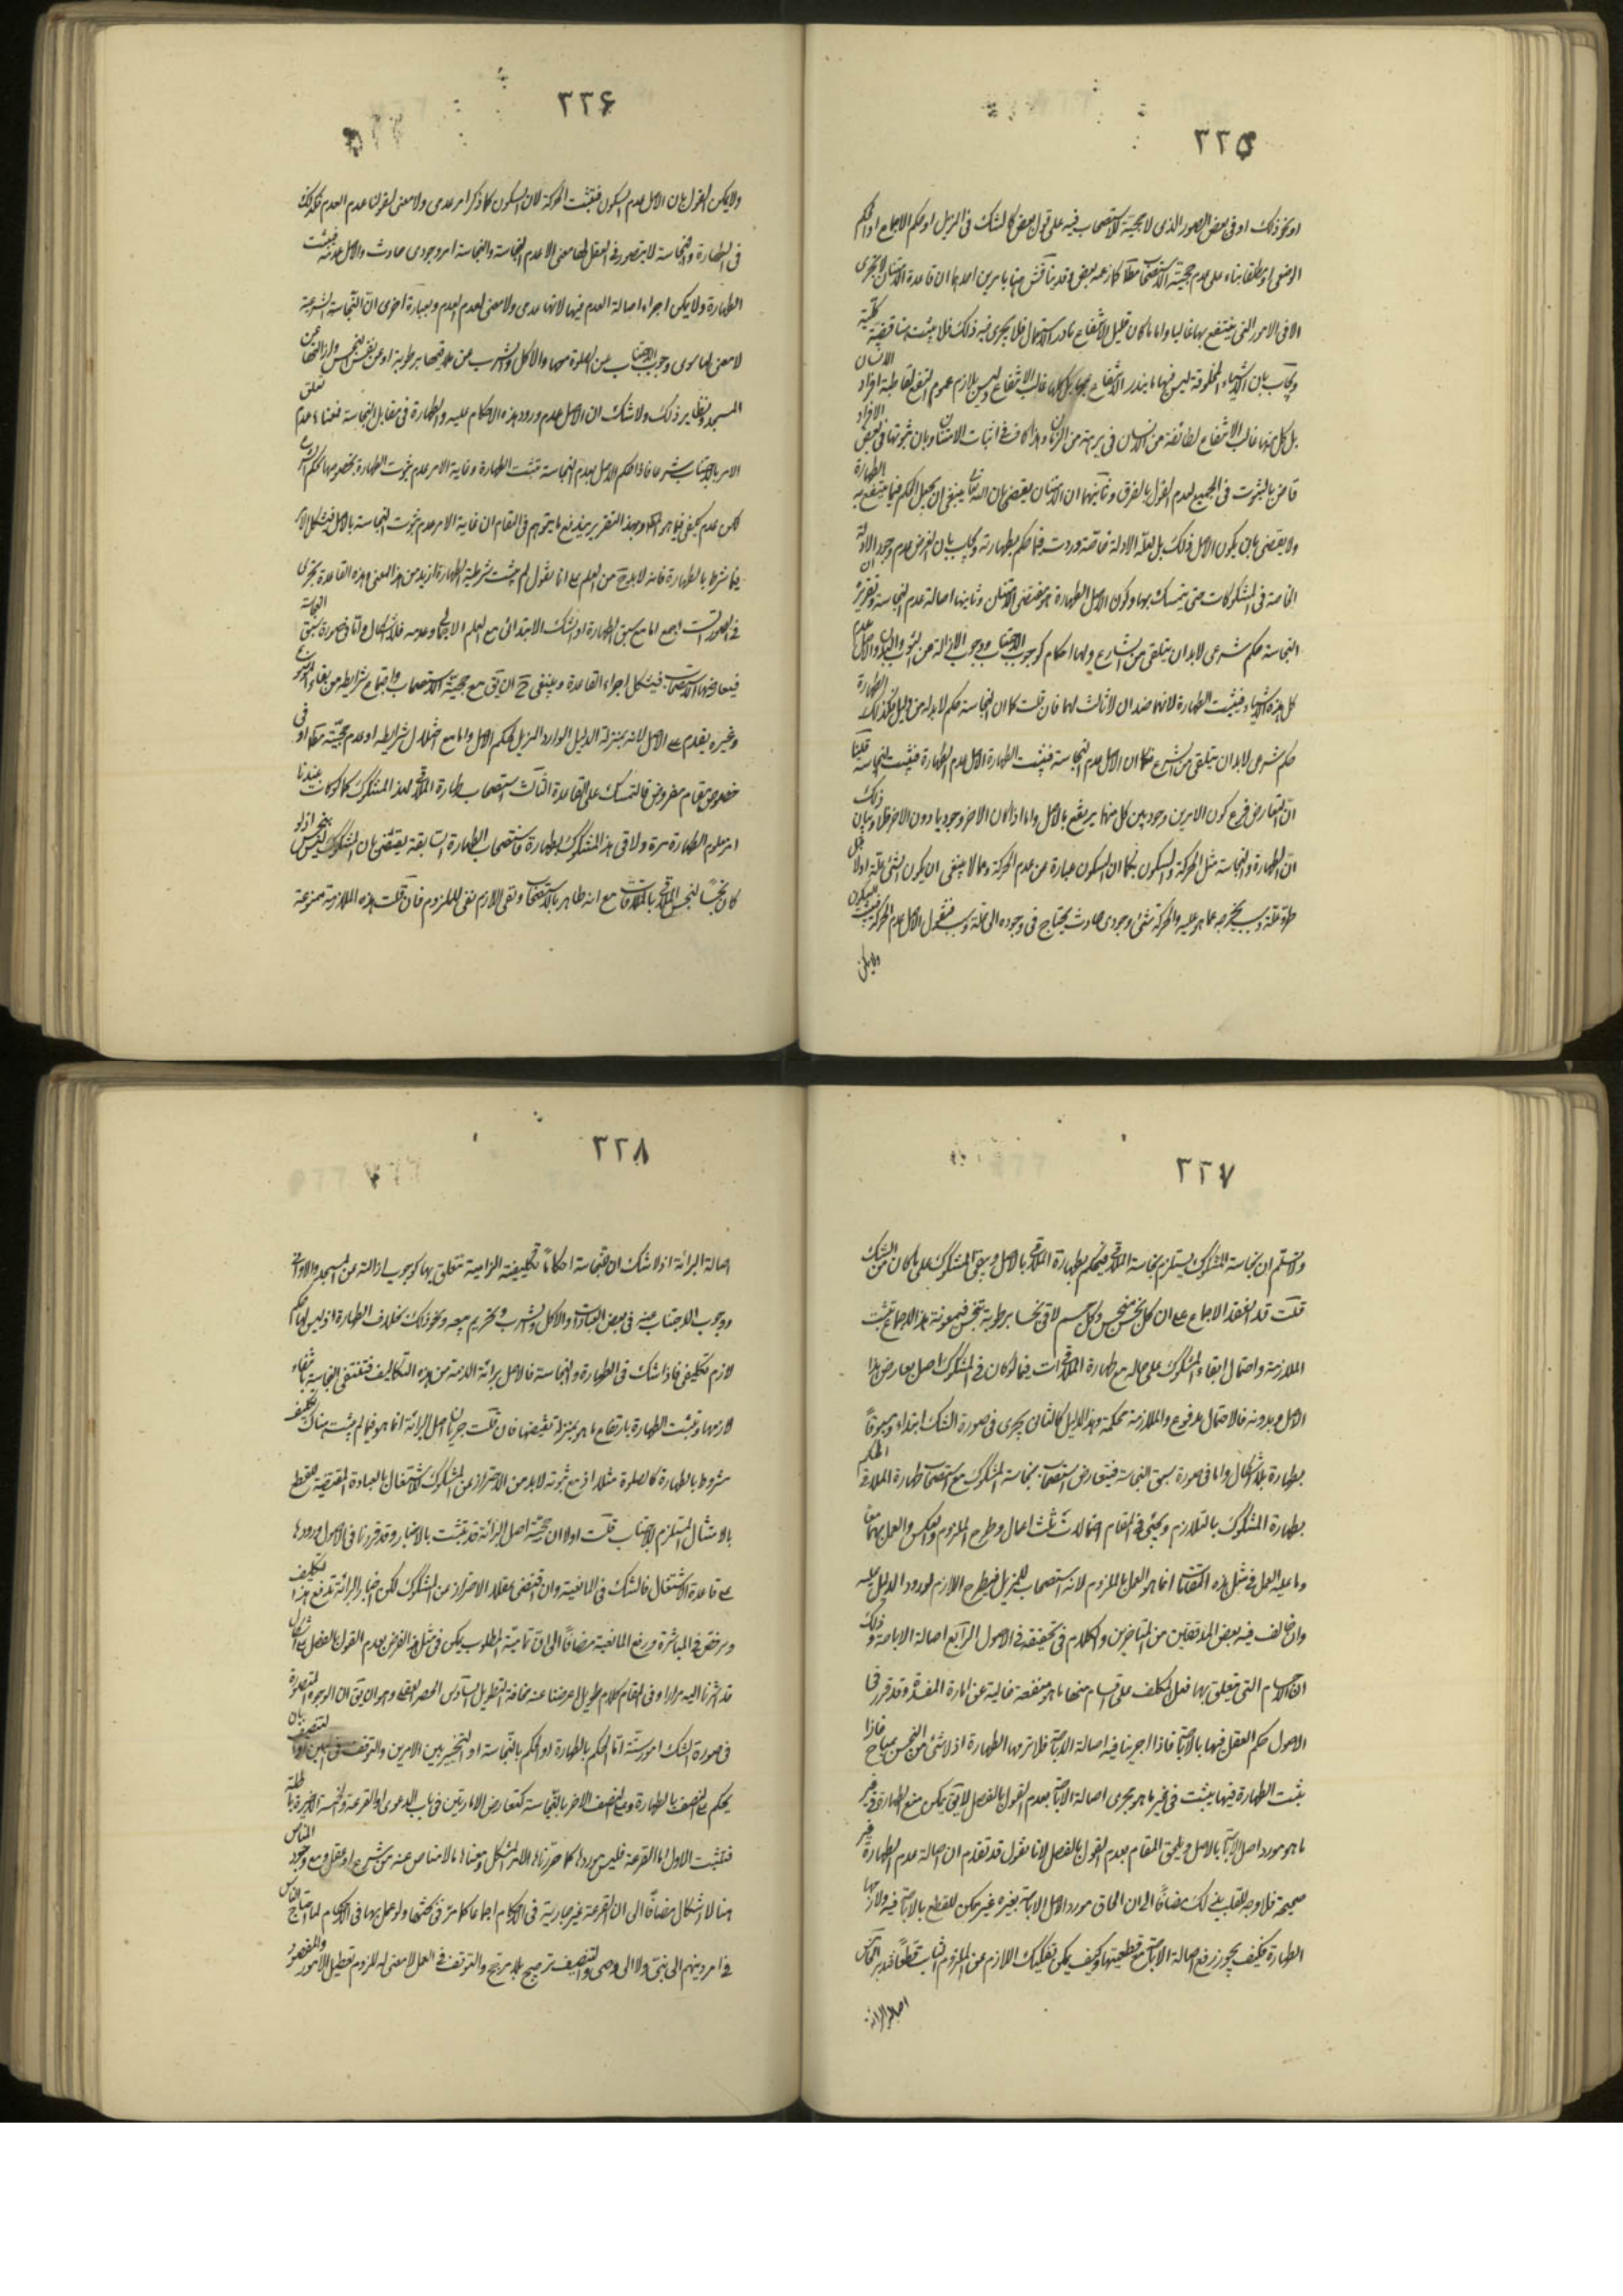 ٣٣٥
او نحو ذلك او في بعض الصور الذي لا حجية للاستصحاب فيه على قول بعض كالشك في المزيل او حكم الاجماع او الحكم
الوضعي او مطلقا بناء على عدم حجية الاستصحاب مطلقا كما زعمه بعض وقد يناقش هنا بامرين احدهما ان قاعدة الامتنان لا تجري
الا في الامور التي ينتفع بها غالبا واما ما كان قليل الانتفاع نادر الاستعمال فلا يجري فيه ذلك فلا يثبت كلية
ويجاب بان الاشياء المخلوقة ليس فيها ما يندر الانتفاع بها بل كلها غالب الانتفاع وليس يلازم عموم النفع لقاطبة افراد الانسان
بل كل منها غالب الانتفاع لطائفة من الانسان في برهة من الزمان وهذا كاف في اثبات الامتنان وبان ثبوتها في بعض الافراد
قاض بالثبوت في الجميع لعدم القول بالفرق وثانيهما ان الامتنان يقضي بان الله تعالى ينبغي ان يجعل الحكم فيما ينتفع به الطهارة
ولا يقضي بان يكون الاصل ذلك بل لعله لادلة خاصة وردت فيما حكم بطهارته ويجاب بان الفرض عدم وجود الادلة
الخاصة في المشكوكات حتى يتمسك بها وكون الاصل الطهارة هو مقتضى الامتنان وثانيها اصالة عدم النجاسة وتقريره ان
النجاسة حكم شرعي لا بد ان يتلقى من الشارع ولها احكام كوجوب الاجتناب ووجوب الازالة من الثوب والبدن والاصل عدم
كل هذه الاشياء فيثبت الطهارة لانهما ضدان لا ثالث لهما فان قلت كما ان النجاسة حكم لا بد له من دليل فكذلك الطهارة
حكم شرعي لا بد ان يتلقى من الشرع فكما ان الاصل عدم النجاسة فيثبت الطهارة الاصل عدم الطهارة فيثبت النجاسة قلنا
ان التعارض فرع كون الامرين وجوديين كل منهما يرتفع بالاصل واما اذا كان الاخر وجوديا دون الاخر فلا وبيان ذلك
ان الطهارة والنجاسة مثل الحركة والسكون فكما ان السكون عبارة عن عدم الحركة ومما لا ينبغي ان يكون لشيء علة اولا بل
طروّ علة وسبب يخرجه عما هو عليه والحركة شيء وجودي حادث يحتاج في وجوده الى علة وسبب فنقول الاصل عدم الحركة فيثبت السكون
ولا يمكن
٣٣۶
ولا يمكن القول بان الاصل عدم السكون فيثبت الحركة لان السكون كما ذكر امر عدمي ولا معنى لقولنا عدم العدم فكذلك
في الطهارة والنجاسة لا يتصور في العقل لها معنى الا عدم النجاسة والنجاسة امر وجودي حادث والاصل عدمه فيثبت
الطهارة ولا يمكن اجراء اصالة العدم فيها لانها عدمي ولا معنى لعدم العدم وبعبارة اخرى ان النجاسة الشرعية
لا معنى لها سوى وجوب الاجتناب عن الصلوة معها والاكل والشرب عن ملاقيها برطوبة او عن نفس النجس وازالتها عن
المسجد ونظاير ذلك ولا شك ان الاصل عدم ورود هذه الاحكام عليه والطهارة في مقابل النجاسة فمعناه عدم تعلق
الامر بالاجتناب شرعا فاذا حكم الاصل بعدم النجاسة تثبت الطهارة وغاية الامر عدم ثبوت الطهارة بخصوصها
فيما شرط بالطهارة فانه لا بد ح من العلم مع انا نقول لم يثبت شرطية الطهارة ازيد من هذا المعنى وهذه القاعدة تجري
في الصور الست اجمع اما مع سبق الطهارة او الشك الابتدائي مع العلم الاجمالي وعدمه فلا اشكال واما في صورة سبق النجاسة
فيعارضها الاستصحاب فيشكل اجراء القاعدة وينبغي ح ان يق مع حجية الاستصحاب واجتماع شرايطه من بقاء الموضوع
وغيره يقدم على الاصل لانه بمنزلة الدليل الوارد المزيل لحكم الاصل واما مع اختلال شرايطه او عدم حجيته مطلقا او في
خصوص مقام مفروض فالتمسك على القاعدة الثالث استصحاب طهارة الملاقي لهذا المشكوك كما لو كان عندنا
امر معلوم الطهارة مرة ولاقى هذا المشكوك بطهارة فاستصحاب الطهارة السابقة يقتضي بان المشكوك ليس بنجس اذ لو
كان نجسا لنجس الملاقي بالملاقات مع انه طاهر بالاستصحاب ونفي اللازم نفي للملزوم فان قلت هذه الملازمة ممنوعة
٣٣٧
ولا نسلم ان نجاسة المشكوك يستلزم نجاسة الملاقي فيحكم بطهارة الملاقي بالاصل ويبقى المشكوك على ما كان من الشك
قلت قد انعقد الاجماع على ان كل نجس منجس وكل جسم لاقى نجسا برطوبة يتنجس فبمعونة هذا الاجماع تثبت
الملازمة واحتمال ابقاء المشكوك على حاله مع طهارة الملاقي آت فيما لو كان في المشكوك اصل يعارض هذا
الاصل وبدونه فالاحتمال مدفوع والملازمة محكمة وهذا الدليل كالثاني يجري في صورة الشك ابتداء ومسبوقا
بطهارة بلا اشكال واما في صورة سبق النجاسة فيتعارض استصحاب نجاسة المشكوك مع استصحاب طهارة الملاقي الحكم
بطهارة المشكوك بالتلازم ويجيء في المقام احتمالات ثلث اعمال وطرح الملزوم والعكس والعمل بهما معا
وما عليه العمل في مثل هذه المقامات انما هو العمل بالملزوم لانه استصحاب للمزيل فيطرح اللازم لورود الدليل عليه
وان خالف فيه بعض المدققين من المتأخرين والكلام في تحقيقه في الاصول الرابع اصالة الاباحة وذلك
ان الاجسام التي يتعلق بها فعل المكلف على اقسام منها ما هو منفعة خالية عن امارة المفسدة وقد قرر في
الاصول حكم العقل فيها بالاباحة فاذا اجرينا فيه اصالة الاباحة فلازمها الطهارة اذ لا شيء من النجس بمباح فاذا
ثبت الطهارة فيها يثبت في غير ما هو مجرى اصالة الاباحة بعدم القول بالفصل لا يق يمكن منع الطهارة في غير
ما هو مورد اصل الاباحة بالاصل ويلحق المقام بعدم القول بالفصل لانا نقول قد تقدم ان اصالة عدم الطهارة غير
صحيحة فلا وجه للقلب في ذلك مضافا الى ان الحاق مورد اصل الاباحة بغيره غير ممكن للقطع بالاباحة فيه ولازمها
الطهارة فكيف يجوز رفع اصالة الاباحة مع قطعيتها وكيف يمكن تفكيك اللازم عن الملزوم الثابت قطعا فتدبر الخامس
اصالة البرائة
٣٣٨
اصالة البرائة اذ لا شك ان للنجاسة احكاما تكليفية الزامية تتعلق بها كوجوب ازالته عن المسجد والاواني
ووجوب الاجتناب عنه في بعض العبادات والاكل والشرب وتحريم بيعه ونحو ذلك بخلاف الطهارة اذ ليس لها حكم
لازم تكليفي فاذا شك في الطهارة والنجاسة فالاصل برائة الذمة من هذه التكاليف فتنتفي النجاسة بانتفاء
لازمها وتثبت الطهارة بارتفاع ما هو بمنزلة نقيضها فان قلت جريان اصل البرائة انما هو فيما لم يثبت هناك تكليف
مشروط بالطهارة كالصلوة مثلا اذ مع ثبوته لا بد من الاحتراز عن المشكوك لاشتغال بالعبادة المقتضية للقطع
بالامتثال المستلزم للاجتناب قلت اولا ان حجية اصل البرائة قد تثبت بالاخبار وقد قررنا في الاصول ورودها
على قاعدة الاشتغال فالشك في المانعية وان اقتضى عقلا الاحتراز عن المشكوك لكن اخبار البرائة تدفع هذا التكليف
وترخص في المباشرة ورفع المانعية مضافا الى ان تمامية المطلوب يمكن في مثل هذا الفرض بعدم القول بالفصل
قد اشرنا اليه مرارا وفي المقام كلام طويل اعرضنا عنه مخافة التطويل السادس الحصر العقلي وهو ان يق ان الوجوه المتصورة
في صورة الشك امور ستة اما الحكم بالطهارة او الحكم بالنجاسة او التخيير بين الامرين والتوقف في البين او التنصيف بان
يحكم على النصف بالطهارة وعلى النصف الاخر بالنجاسة كتعارض الامارتين في باب الدعوى او القرعة والخمسة الاخيرة باطلة
فتثبت الاول اما القرعة فليس موردها كما حررناها الا المشكل ومعناها ما لا مناص عنه من شرع او عقل ومع وجود المناص
هنا لا اشكال مضافا الى ان القرعة غير جارية في الاحكام اجماعا كما مر في بحثها ولو عمل بها في الاحكام لما احتاج الناس
في امر دينهم الى نبي ولا الى وصي والتنصيف ترجيح بلا مرجح والتوقف في العمل لا معنى له للزوم تعطيل الامور والمقصود